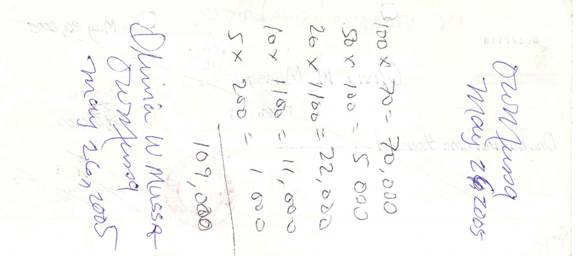 May 26 2005
100 x 70 = 70,000
50 x 100 = 5000
20 x 1100 = 22,000
10 x 1100 = 11,000
5 x 200 = 1000
109,000
Olivia W Mussa
May 26, 2005